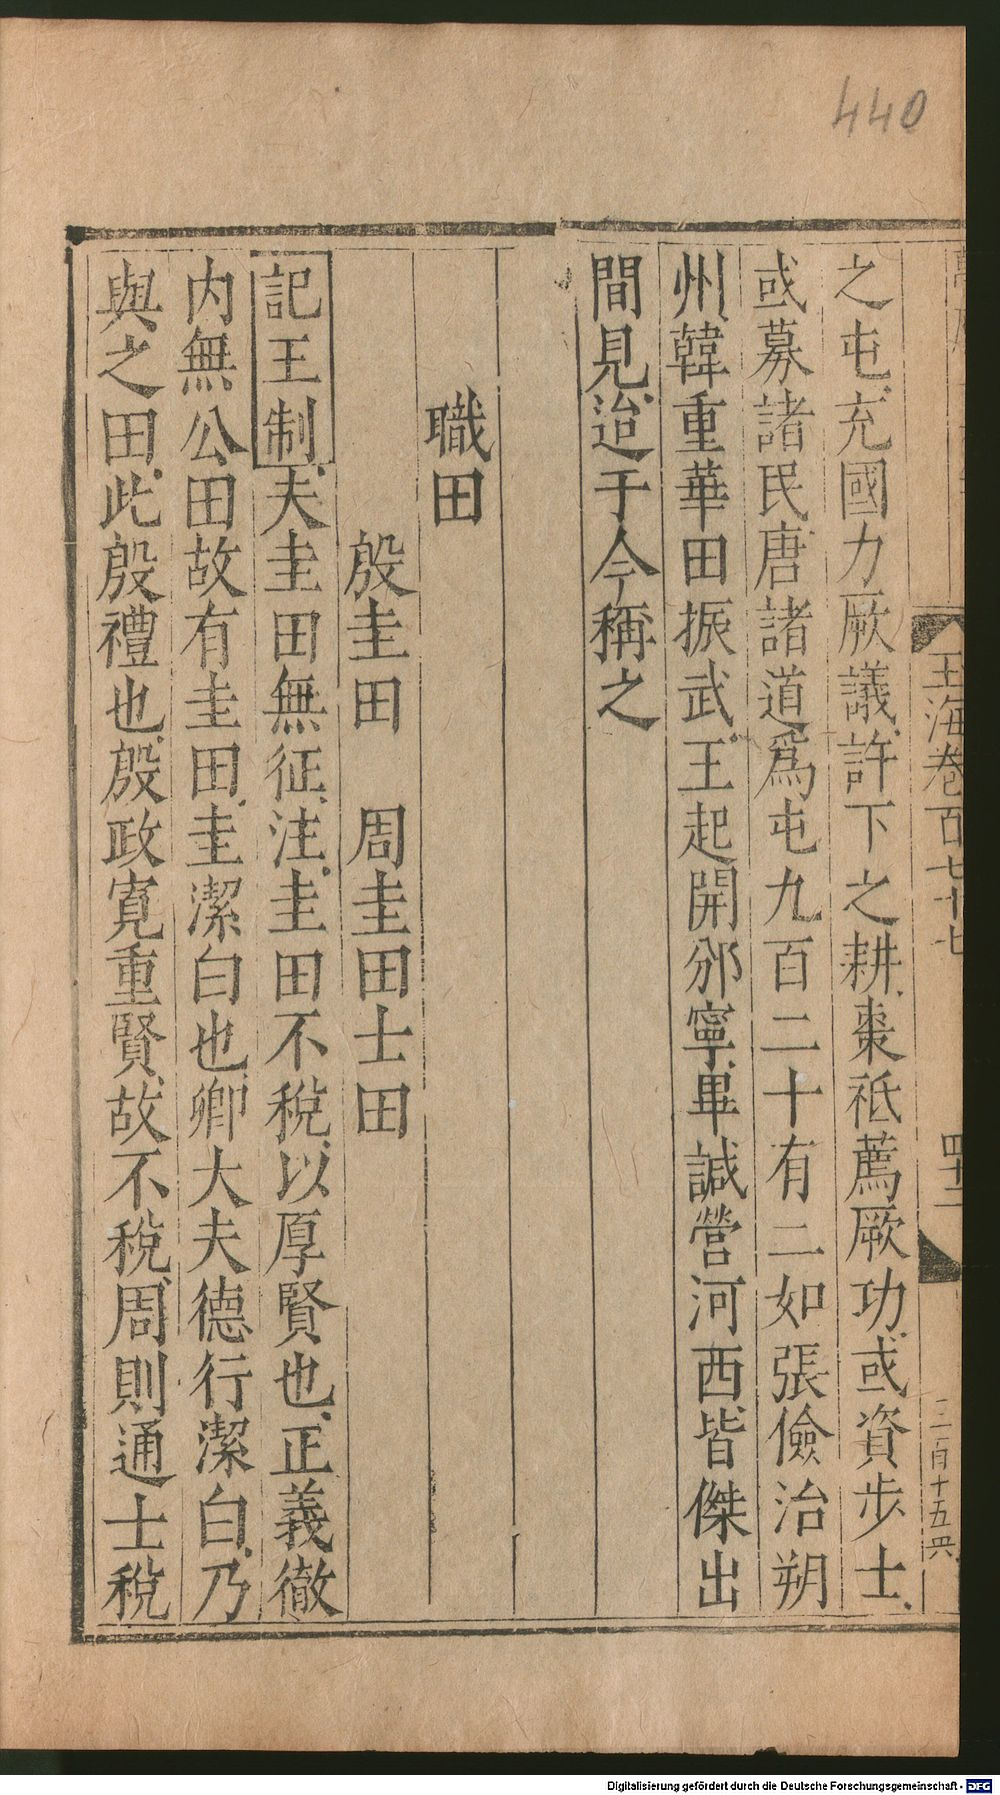 440
玉海卷百七十七
四十二
二百十五字
之屯充國力厥議許下之耕棗祗薦厥功或資步士
或募諸民唐諸道爲屯九百二十有二如張儉治朔
州韓重華田振武王起開邠寧畢諴營河西皆傑出
間見迨于今稱之
職田
殷圭田 周圭田士田
記王制夫圭田無征注圭田不稅以厚賢也正義徹
内無公田故有圭田圭潔白也卿大夫德行潔白乃
與之田此殷禮也殷政寬重賢故不稅周則通士稅
Digitalisierung gefördert durch die Deutsche Forschungsgemeinschaft - DFG